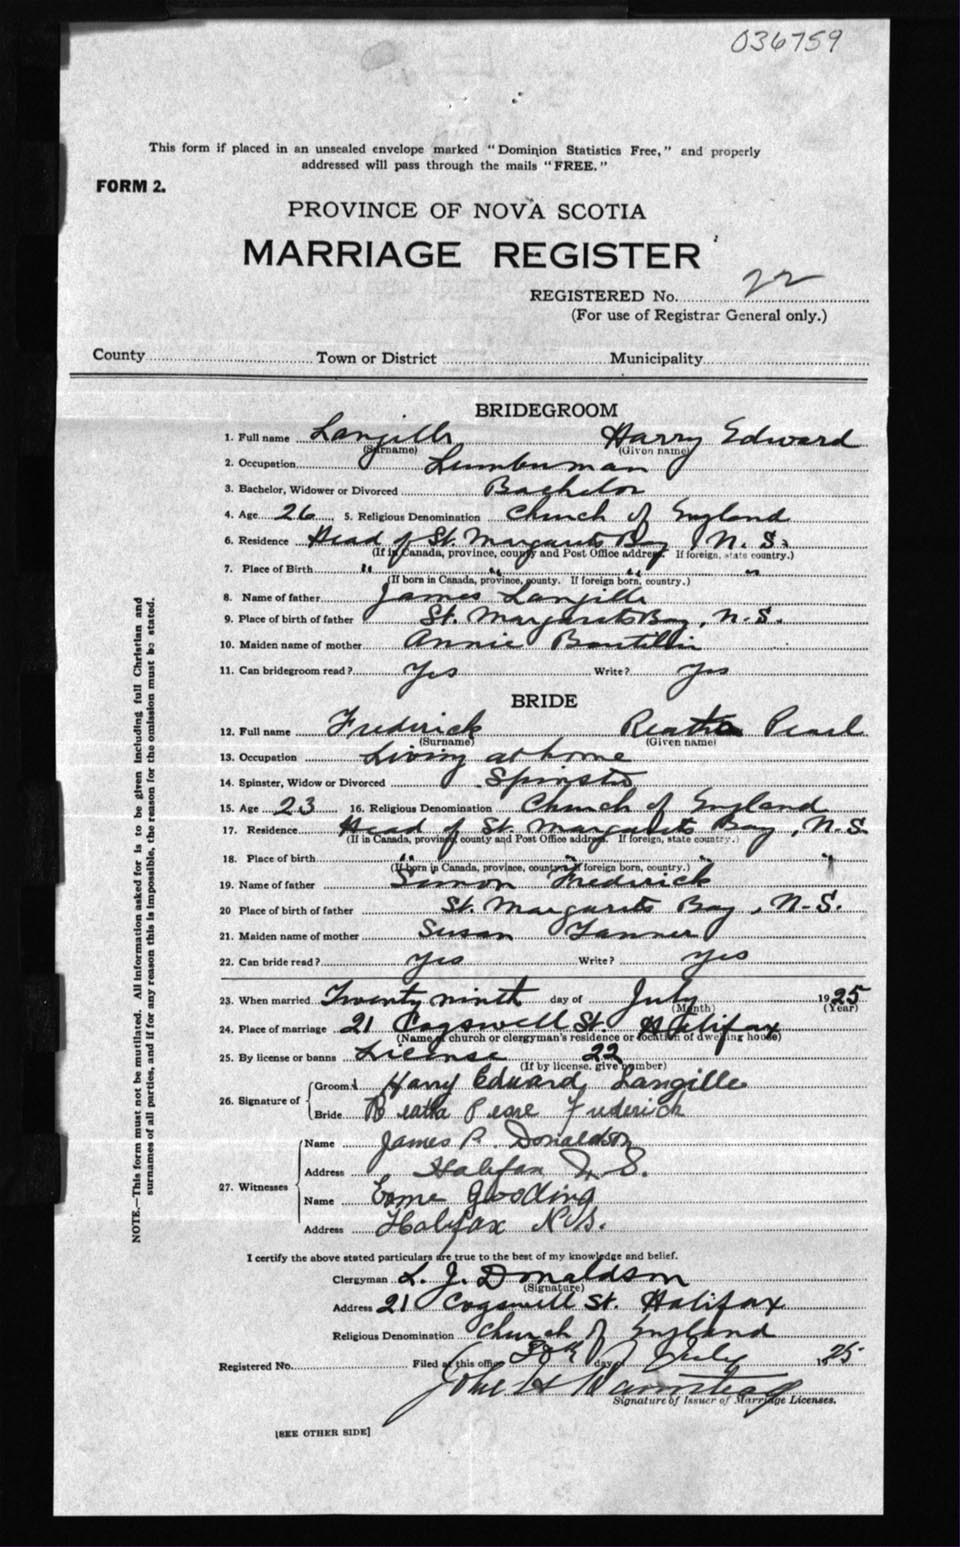 036759
This form if placed in an unsealed envelope marked "Dominion Statistics Free," and properly
addressed will pass through the mails "FREE."
FORM 2.
PROVINCE OF NOVA SCOTIA
MARRIAGE REGISTER
REGISTERED No. 22
(For use of Registrar General only.)
County Town or District Municipality
BRIDEGROOM
1. Full name Langille Harry Edward
(Surname) (Given name)
2. Occupation Lumberman
3. Bachelor, Widower or Divorced Bachelor
4. Age 26 5. Religious Denomination Church of England
6. Residence Head of St. Margarets Bay, N. S.
(If in Canada, province, county and Post Office address. If foreign, state country.)
7. Place of Birth " " " "
(If born in Canada, province, county. If foreign born, country.)
8. Name of father James Langille
9. Place of birth of father St. Margarets Bay, N.S.
10. Maiden name of mother Annie Boutilier
11. Can bridegroom read? Yes Write? Yes
BRIDE
12. Full name Frederick Reatha Pearl
(Surname) (Given name)
13. Occupation Living at home
14. Spinster, Widow or Divorced Spinster
15. Age 23 16. Religious Denomination Church of England
17. Residence Head of St. Margarets Bay, N.S.
(If in Canada, province, county and Post Office address. If foreign, state country.)
18. Place of birth " " " "
(If born in Canada, province, county. If foreign born, country.)
19. Name of father Simon Frederick
20 Place of birth of father St. Margarets Bay, N.S.
21. Maiden name of mother Susan Tanner
22. Can bride read? Yes Write? Yes
23. When married Twenty ninth day of July 1925
(Month) (Year)
24. Place of marriage 21 Cogswell St. Halifax
(Name of church or clergyman's residence or location of dwelling house)
25. By license or banns License 22
(If by license, give number)
26. Signature of
Groom Harry Edward Langille
Bride Reatha Pearl Frederick
27. Witnesses
Name James P. Donaldson
Address Halifax N.S.
Name Gooding
Address Halifax N.S.
I certify the above stated particulars are true to the best of my knowledge and belief.
Clergyman L. J. Donaldson
(Signature)
Address 21 Cogswell St. Halifax
Religious Denomination Church of England
Registered No. Filed at this office 30th day of July 1925
John H
Signature of Issuer of Marriage Licenses.
[SEE OTHER SIDE]
NOTE.—This form must not be mutilated. All information asked for is to be given including full Christian and
surnames of all parties, and if for any reason this is impossible, the reason for the omission must be stated.